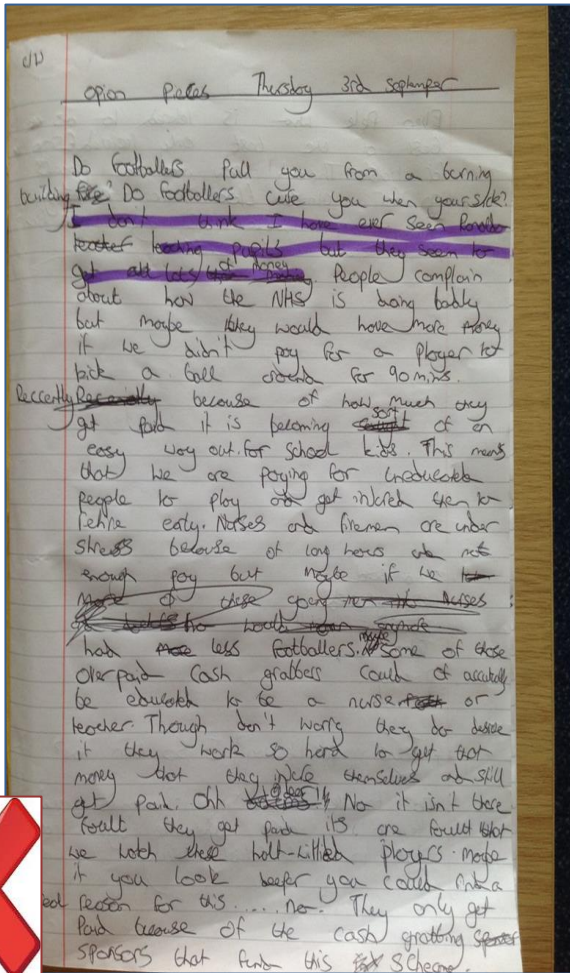 c/w
opion pieces Thursday 3rd septemper
Do footballers pull you from a burning
building fire? Do footballers cure you when your sick?
I don't think I have ever seen Ronaldo
teacher teaching pupils but they seen to
get all lots of money. People complain
about how the NHS is doing badly
but maybe they would have more money
if we didn't pay for a player to
kick a ball around for 90 mins.
Reccertly because of how much they
get paid it is becoming sort of an
easy way out for school kids. This means
that we are paying for uneducated
people to play and get injured then to
retire early. Nurses and firemen are under
stress because of long hours and not
enough pay but maybe if we
More of these young men Nurses
had less footballers. maybe some of those
overpaid cash grabbers could of accutally
be educated to be a nurse or
teacher. Though don't worry they do desive
it they work so hard to get that
money that they themselves and still
get paid. Ohh No it isn't there
foult they get paid its are foult that
we watch these halt-witted players. maybe
if you look deeper you could find a
reason for this ..... no! They only get
Paid because of the cash grabbing
sponsors that fund this scheme.